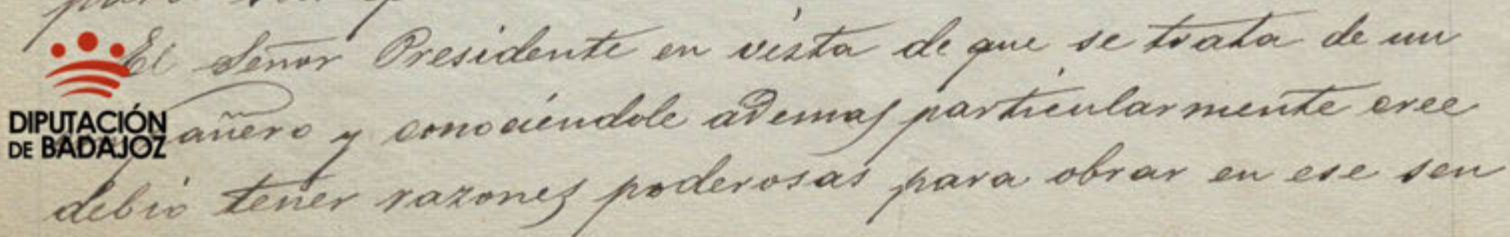 para
El Señor Presidente en vista de que se trata de un
DIPUTACIÓN
DE BADAJOZ
añero y conociéndole ademas particularmente cree
debio tener razones poderosas para obrar en ese sen